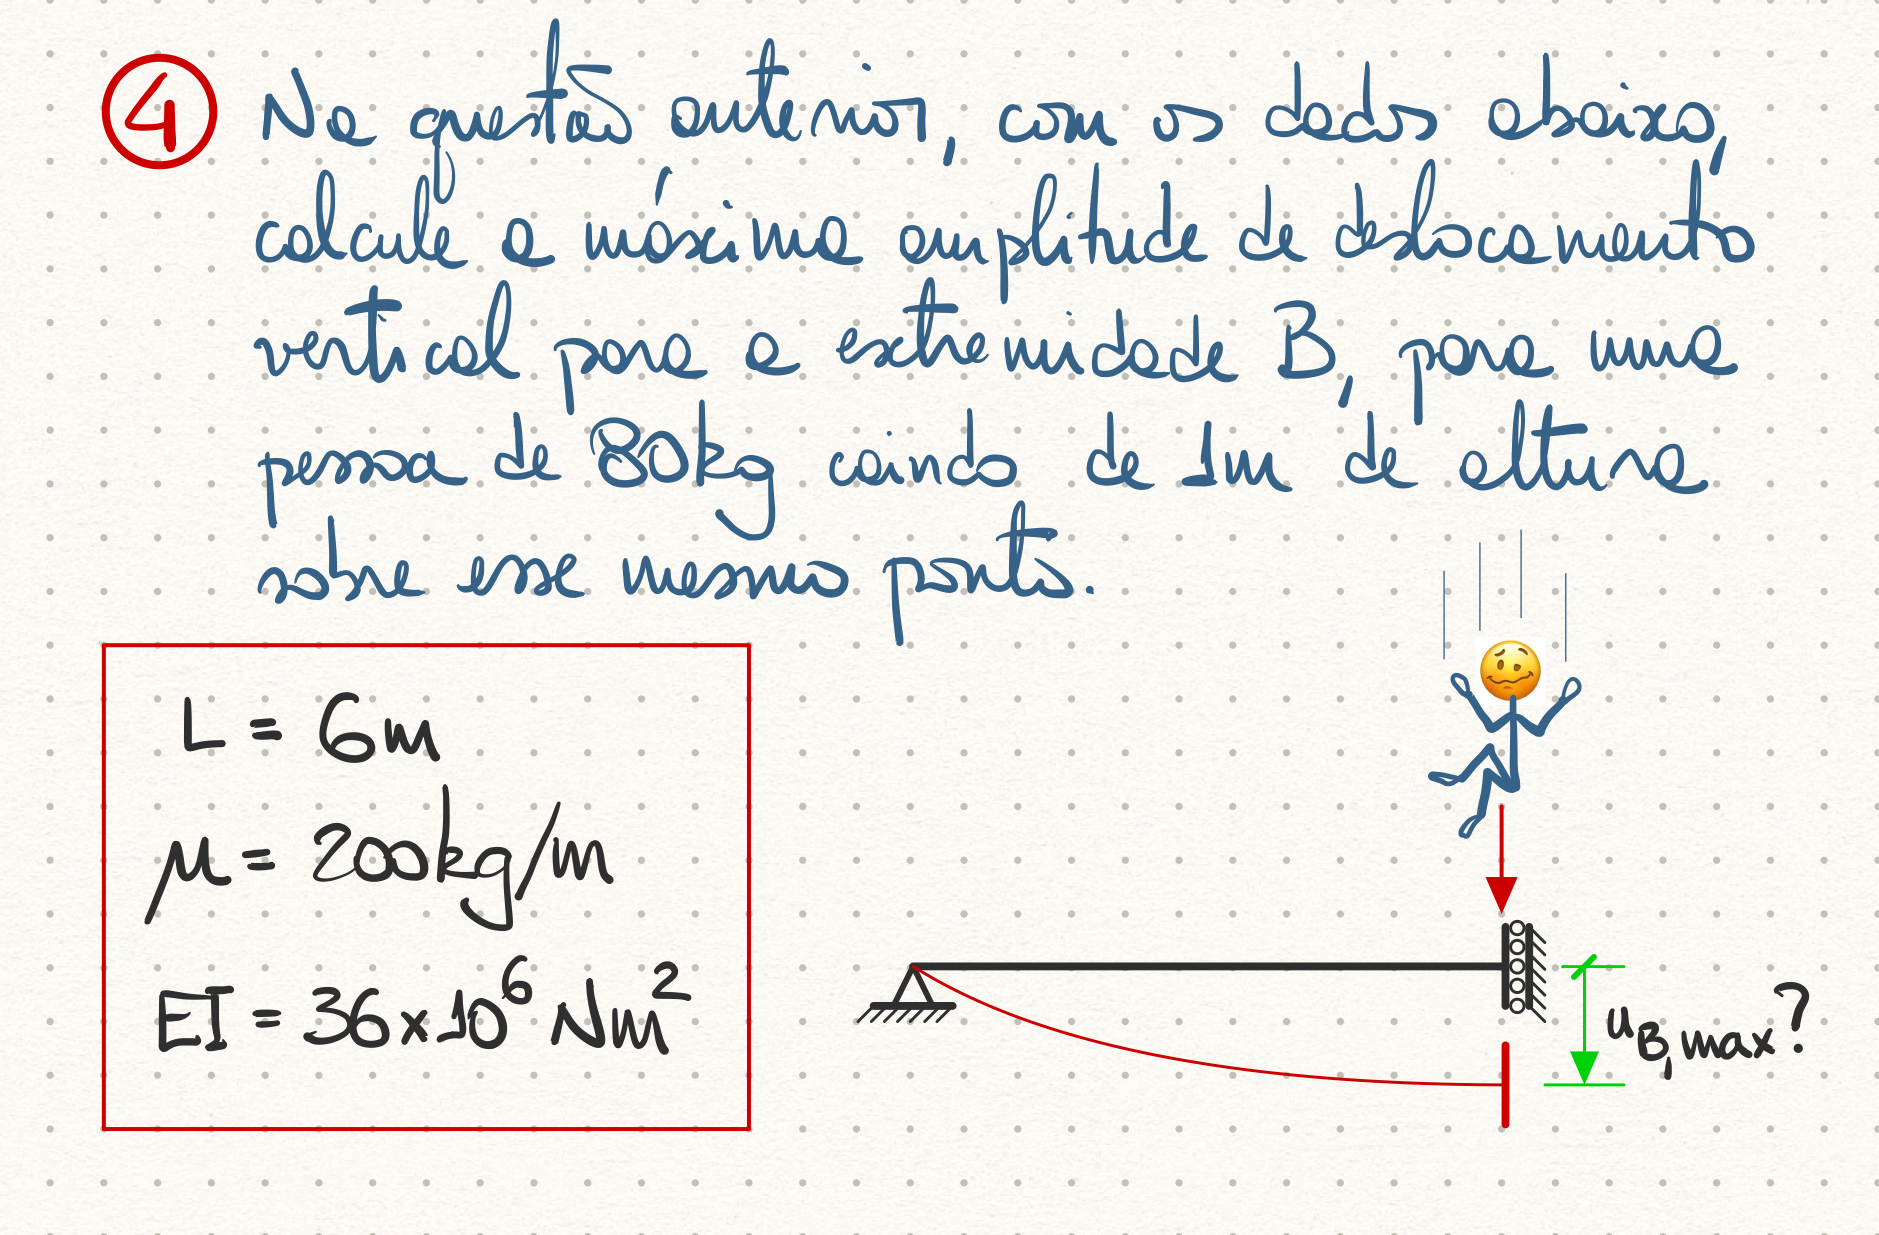 4 Na questão anterior, com os dados abaixo,
calcule a máxima amplitude de deslocamento
vertical para a extremidade B, para uma
pessoa de 80kg caindo de 1m de altura
sobre esse mesmo ponto.
L = 6m
μ = 200kg/m
EI = 36x10⁶ Nm²
u_B,max?